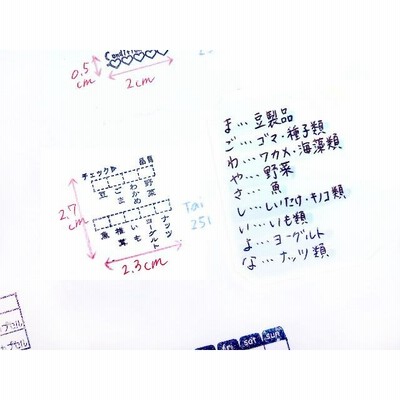 Condition
0.5cm
2cm
チェック▷ 品目
豆 ごま わかめ 野菜
魚 椎茸 いも ヨーグルト ナッツ
2.7cm
2.3cm
Tai
251
25
ま…豆製品
ご…ゴマ・種子類
わ…ワカメ・海藻類
や…野菜
さ…魚
し…しいたけ・キノコ類
い…いも類
よ…ヨーグルト
な…ナッツ類
sat sun